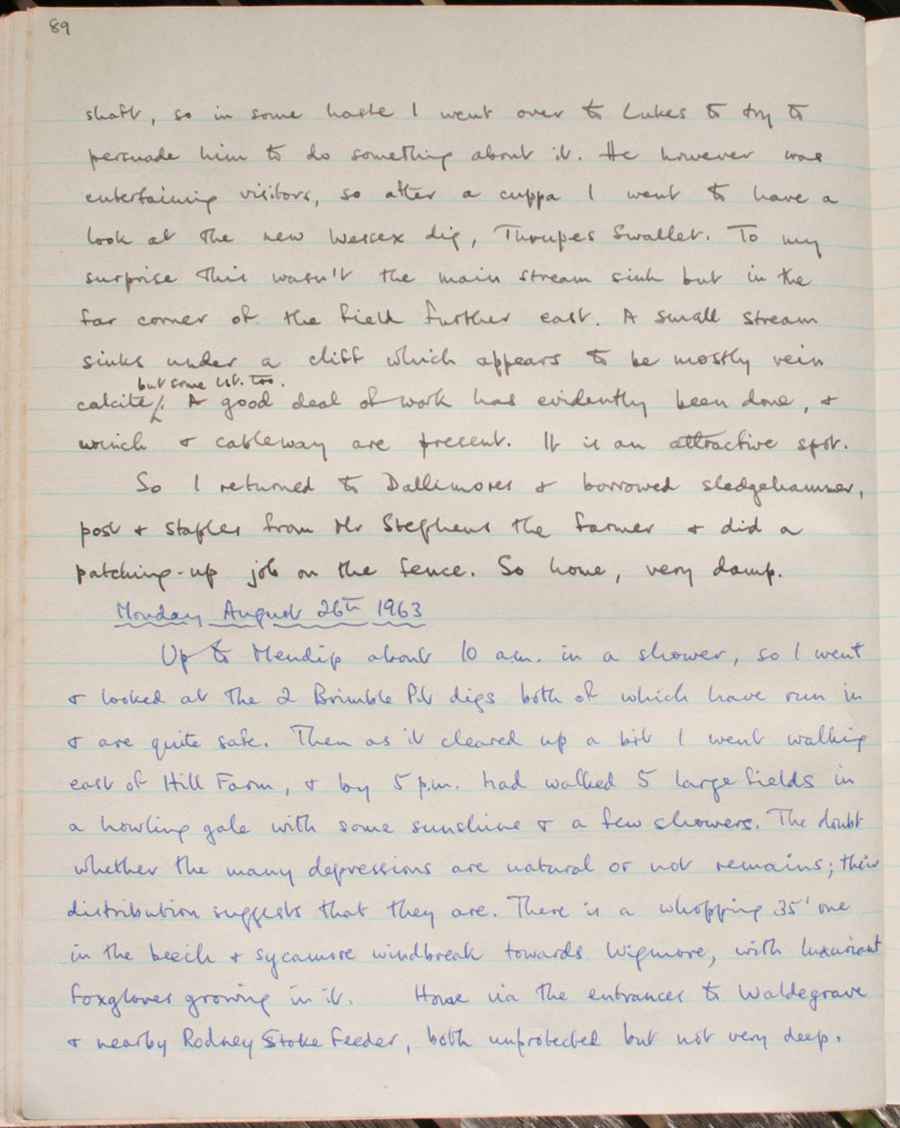 89
shaft, so in some haste I went over to Lukes to try to
persuade him to do something about it. He however was
entertaining visitors, so after a cuppa I went to have a
look at the new Wessex dig, Thrupes Swallet. To my
surprise this wasn't the main stream sink but in the
far corner of the field further east. A small stream
sinks under a cliff which appears to be mostly vein
but some lst. too.
calcite. A good deal of work has evidently been done, &
winch & cableway are present. It is an attractive spot.
So I returned to Dallimores & borrowed sledgehammer,
post & staples from Mr Stephens the farmer & did a
patching-up job on the fence. So home, very damp.
Monday August 26th 1963
Up to Mendip about 10 a.m. in a shower, so I went
& looked at the 2 Brimble Pit digs both of which have run in
& are quite safe. Then as it cleared up a bit I went walking
east of Hill Farm, & by 5 p.m. had walked 5 large fields in
a howling gale with some sunshine & a few showers. The doubt
whether the many depressions are natural or not remains; their
distribution suggests that they are. There is a whopping 35' one
in the beech & sycamore windbreak towards Wigmore, with luxuriant
foxgloves growing in it. Home via the entrances to Waldegrave
& nearby Rodney Stoke Feeder, both unprotected but not very deep.